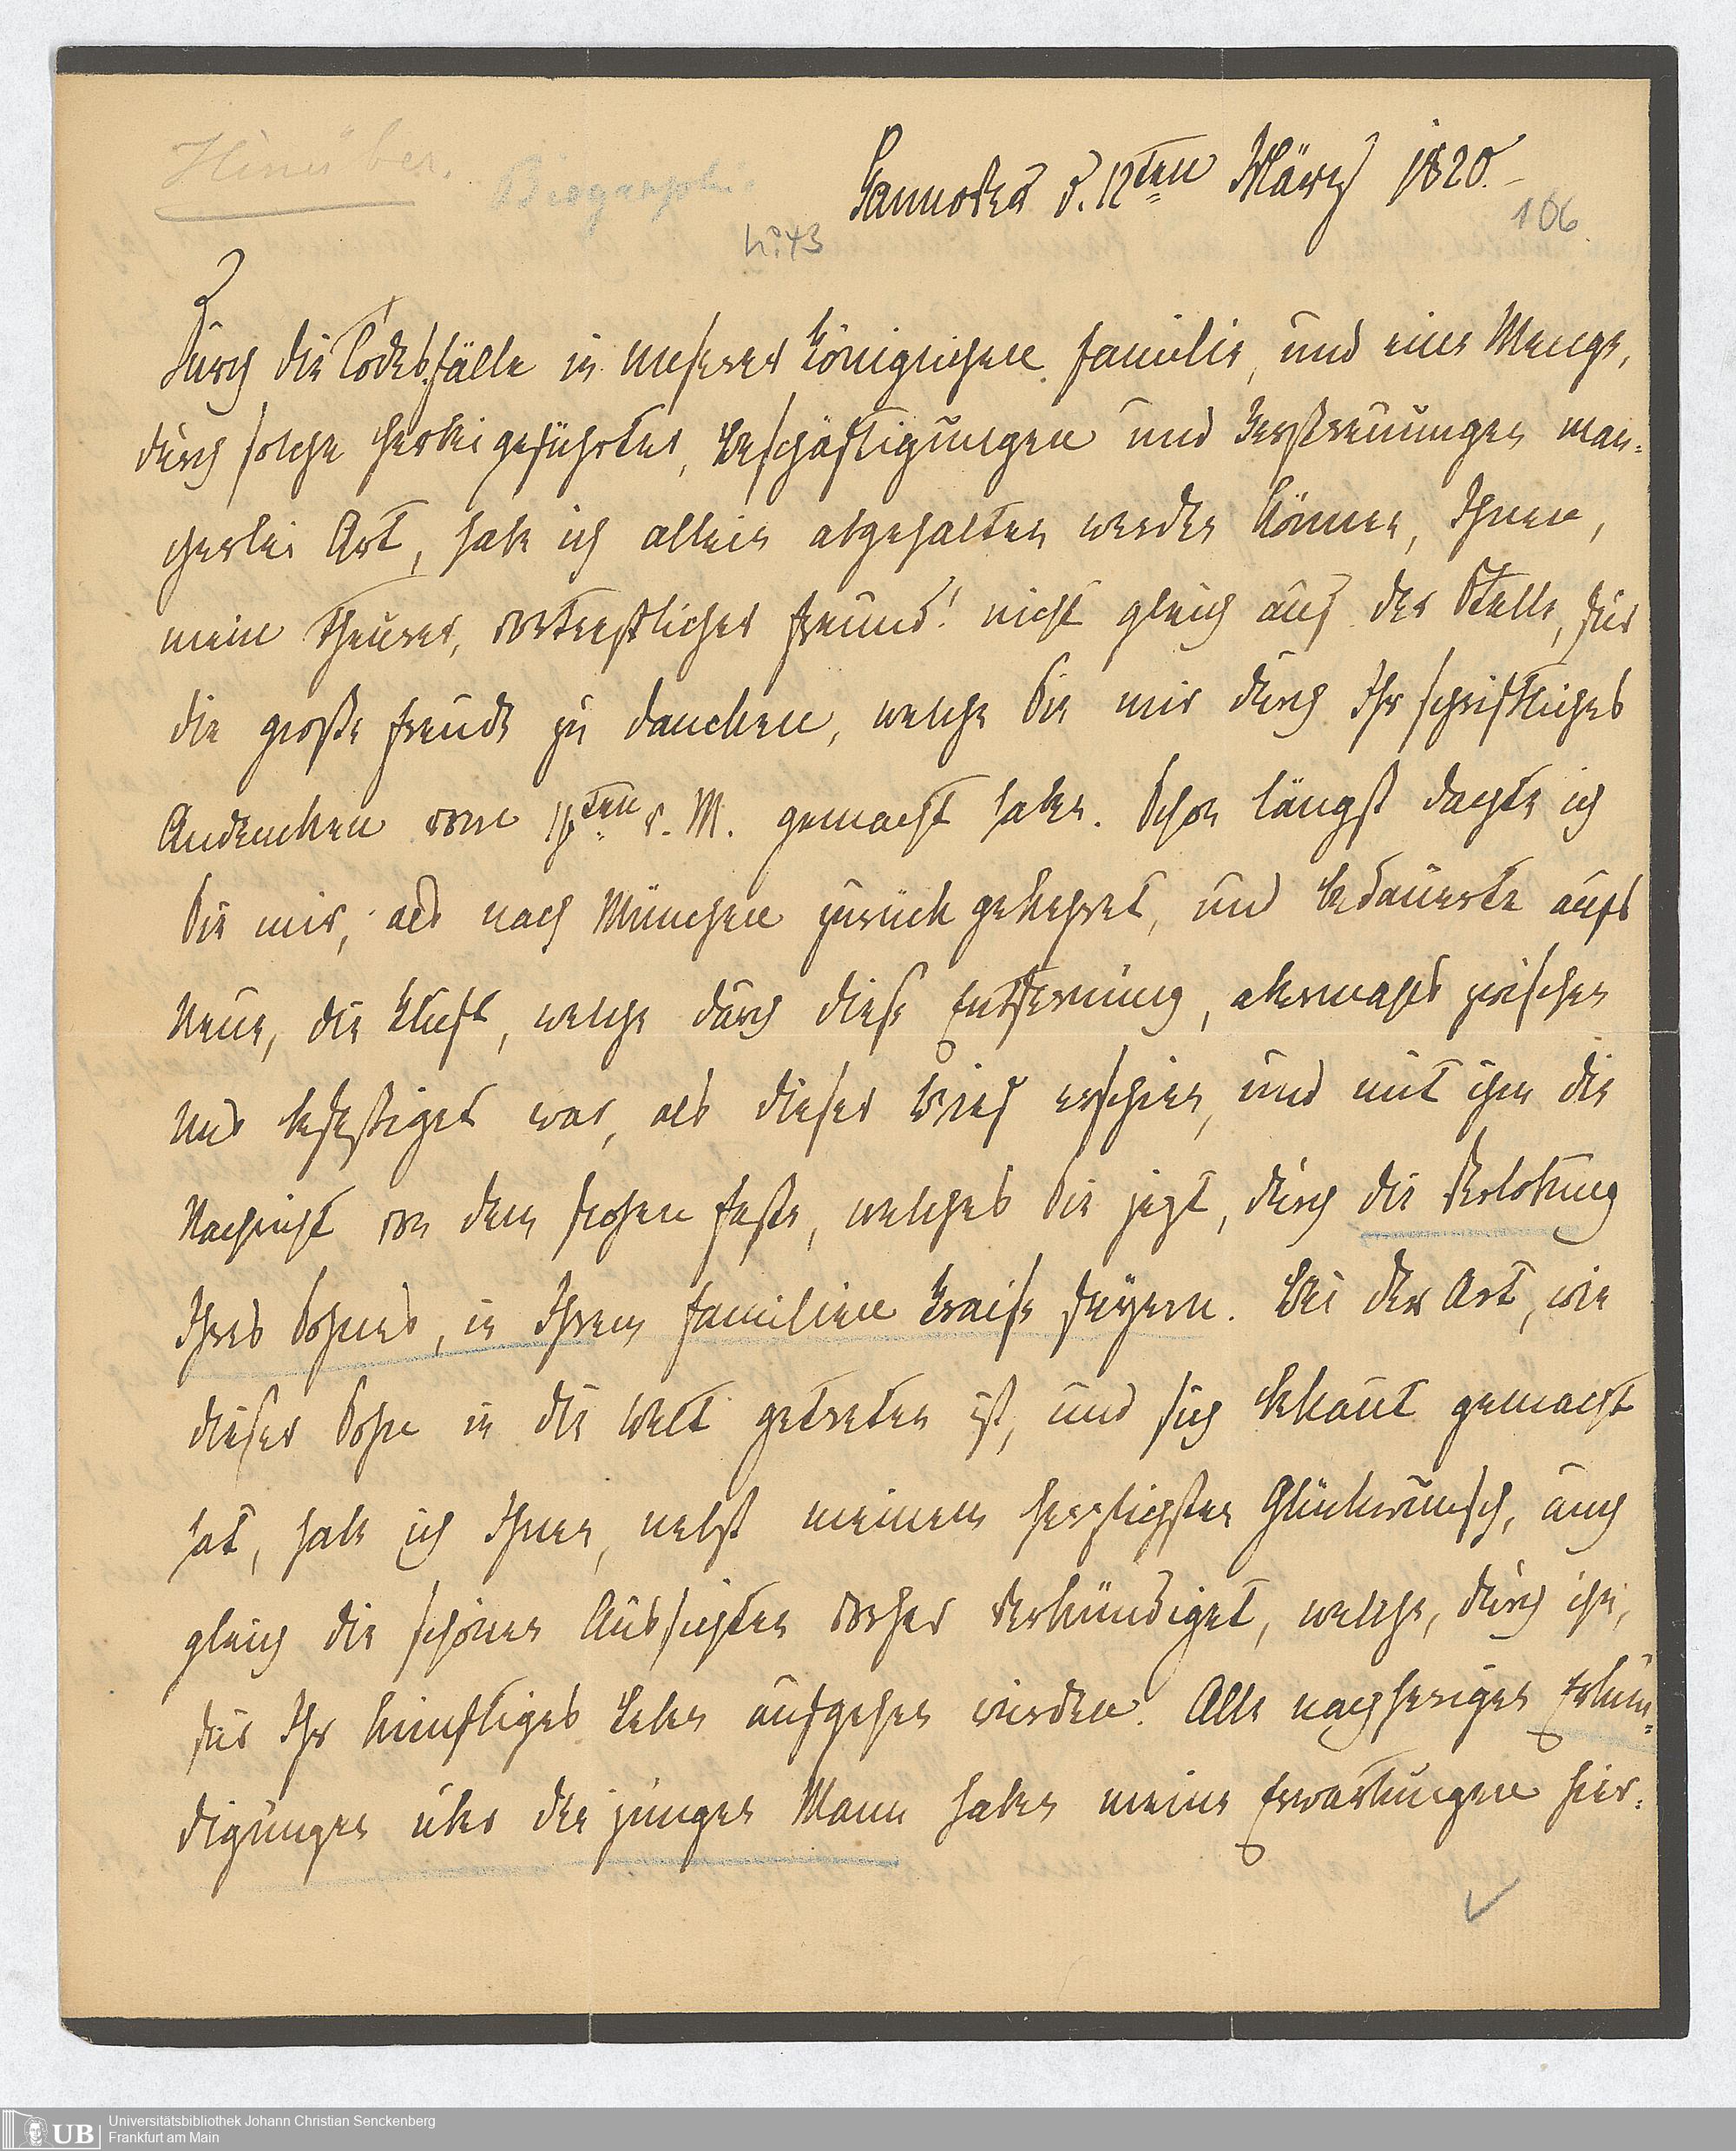 Hinüber.
Biographie
Hannover d. 12ten März 1820.
No 43
106
Durch die Todesfälle in unserer Königlichen Familie, und eine Menge,
durch solche herbei geführter, Beschäftigungen und Zerstreuungen man-
cherlei Art, habe ich allein abgehalten werden können, Ihnen,
mein theurer, vortrefflicher Freund! nicht gleich auf der Stelle, für
die große Freude zu dancken, welche Sie mir durch Ihr schriftliches
Andencken vom ten v. M. gemacht haben. Schon längst dachte ich
Sie mir, als nach München zurück gekehret, und bedauerte aufs
Neue, die Kluft, welche durch diese Entfernung, abermahls zwischen
uns befestiget war, als dieser Brief erschien, und mit ihm die
Nachricht von dem frohen Feste, welches Sie jezt, durch die Verlobung
Ihres Sohnes, in Ihrem Familien Kreise feyern. Bei der Art, wie
dieser Sohn in die Welt getreten ist, und sich bekant gemacht
hat, habe ich Ihnen, nebst meinem herzlichsten Glückwunsch, auch
gleich die schönen Aussichten vorher verkündiget, welche, durch ihn,
für Ihr künftiges Leben aufgehen würden. Alle nachherigen Erkun-
digungen über den jungen Mann haben meine Erwartungen hier-
UB
Universitätsbibliothek Johann Christian Senckenberg
Frankfurt am Main